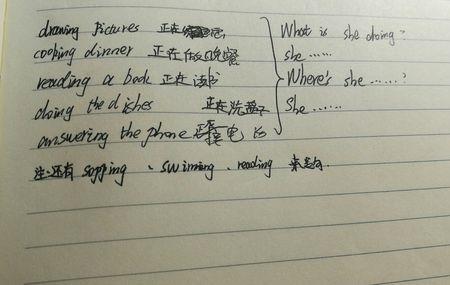 drawing Pictures 正在
What is she doing?
cooking dinner 正在做晚餐
she ......
reading a book 正在读书
Where's she ......?
doing the dishes 正在洗盘子
She ......
answering the phone 接电话
注:还有 sopping 、swiming 、reading